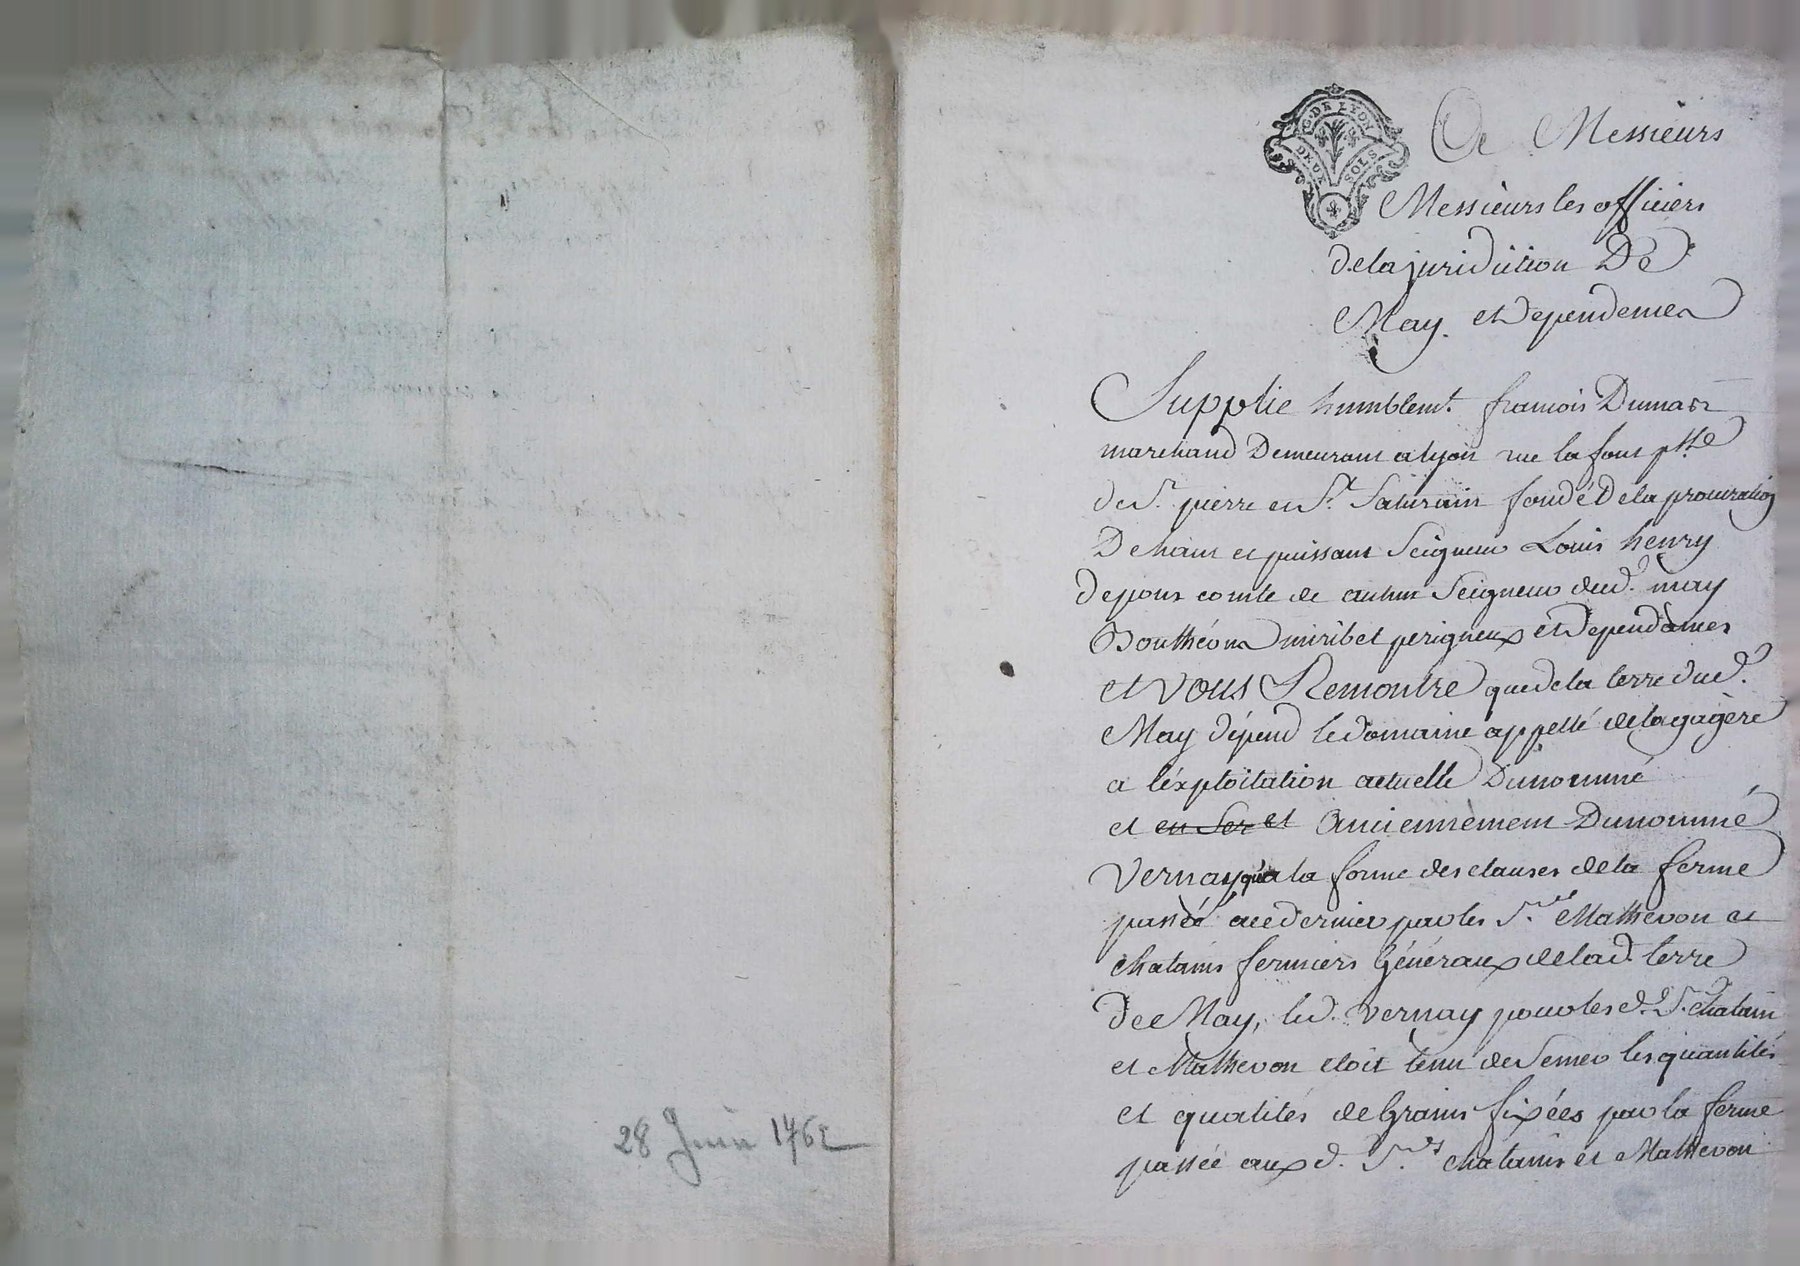 28 Juin 1762
G. DE LYON
DEUX SOLS
A Messieurs
Messieurs les officiers
de la juridiction De
May et Dependences
Supplie humblemt. francois Dumas
marchand Demeurant a lyon rue la font psse
de St. pierre et St. Saturnin fondé De la procuration
De haut et puissant Seigneur Louis henry
de pons comte de Seigneur dud. may
Bouthéon miribel perigneux et Dependances
et vous Remontre que de la terre dud.
May dépend le domaine appellé de la gagere
a l'éxploitation actuelle Dunommé
et en Ser et Anciennement Dunommé
Vernay qu'a la forme des clauses de la ferme
passée au dernier par les Srs. Mathevon et
chatains fermiers Généraux de lad. terre
de May, led. Vernay par les d. Srs. chatain
et Mathevon etoit tenu de Semer les quantités
et qualités de Grains fixées par la ferme
passée aux d. Srs. chatains et Mathevon